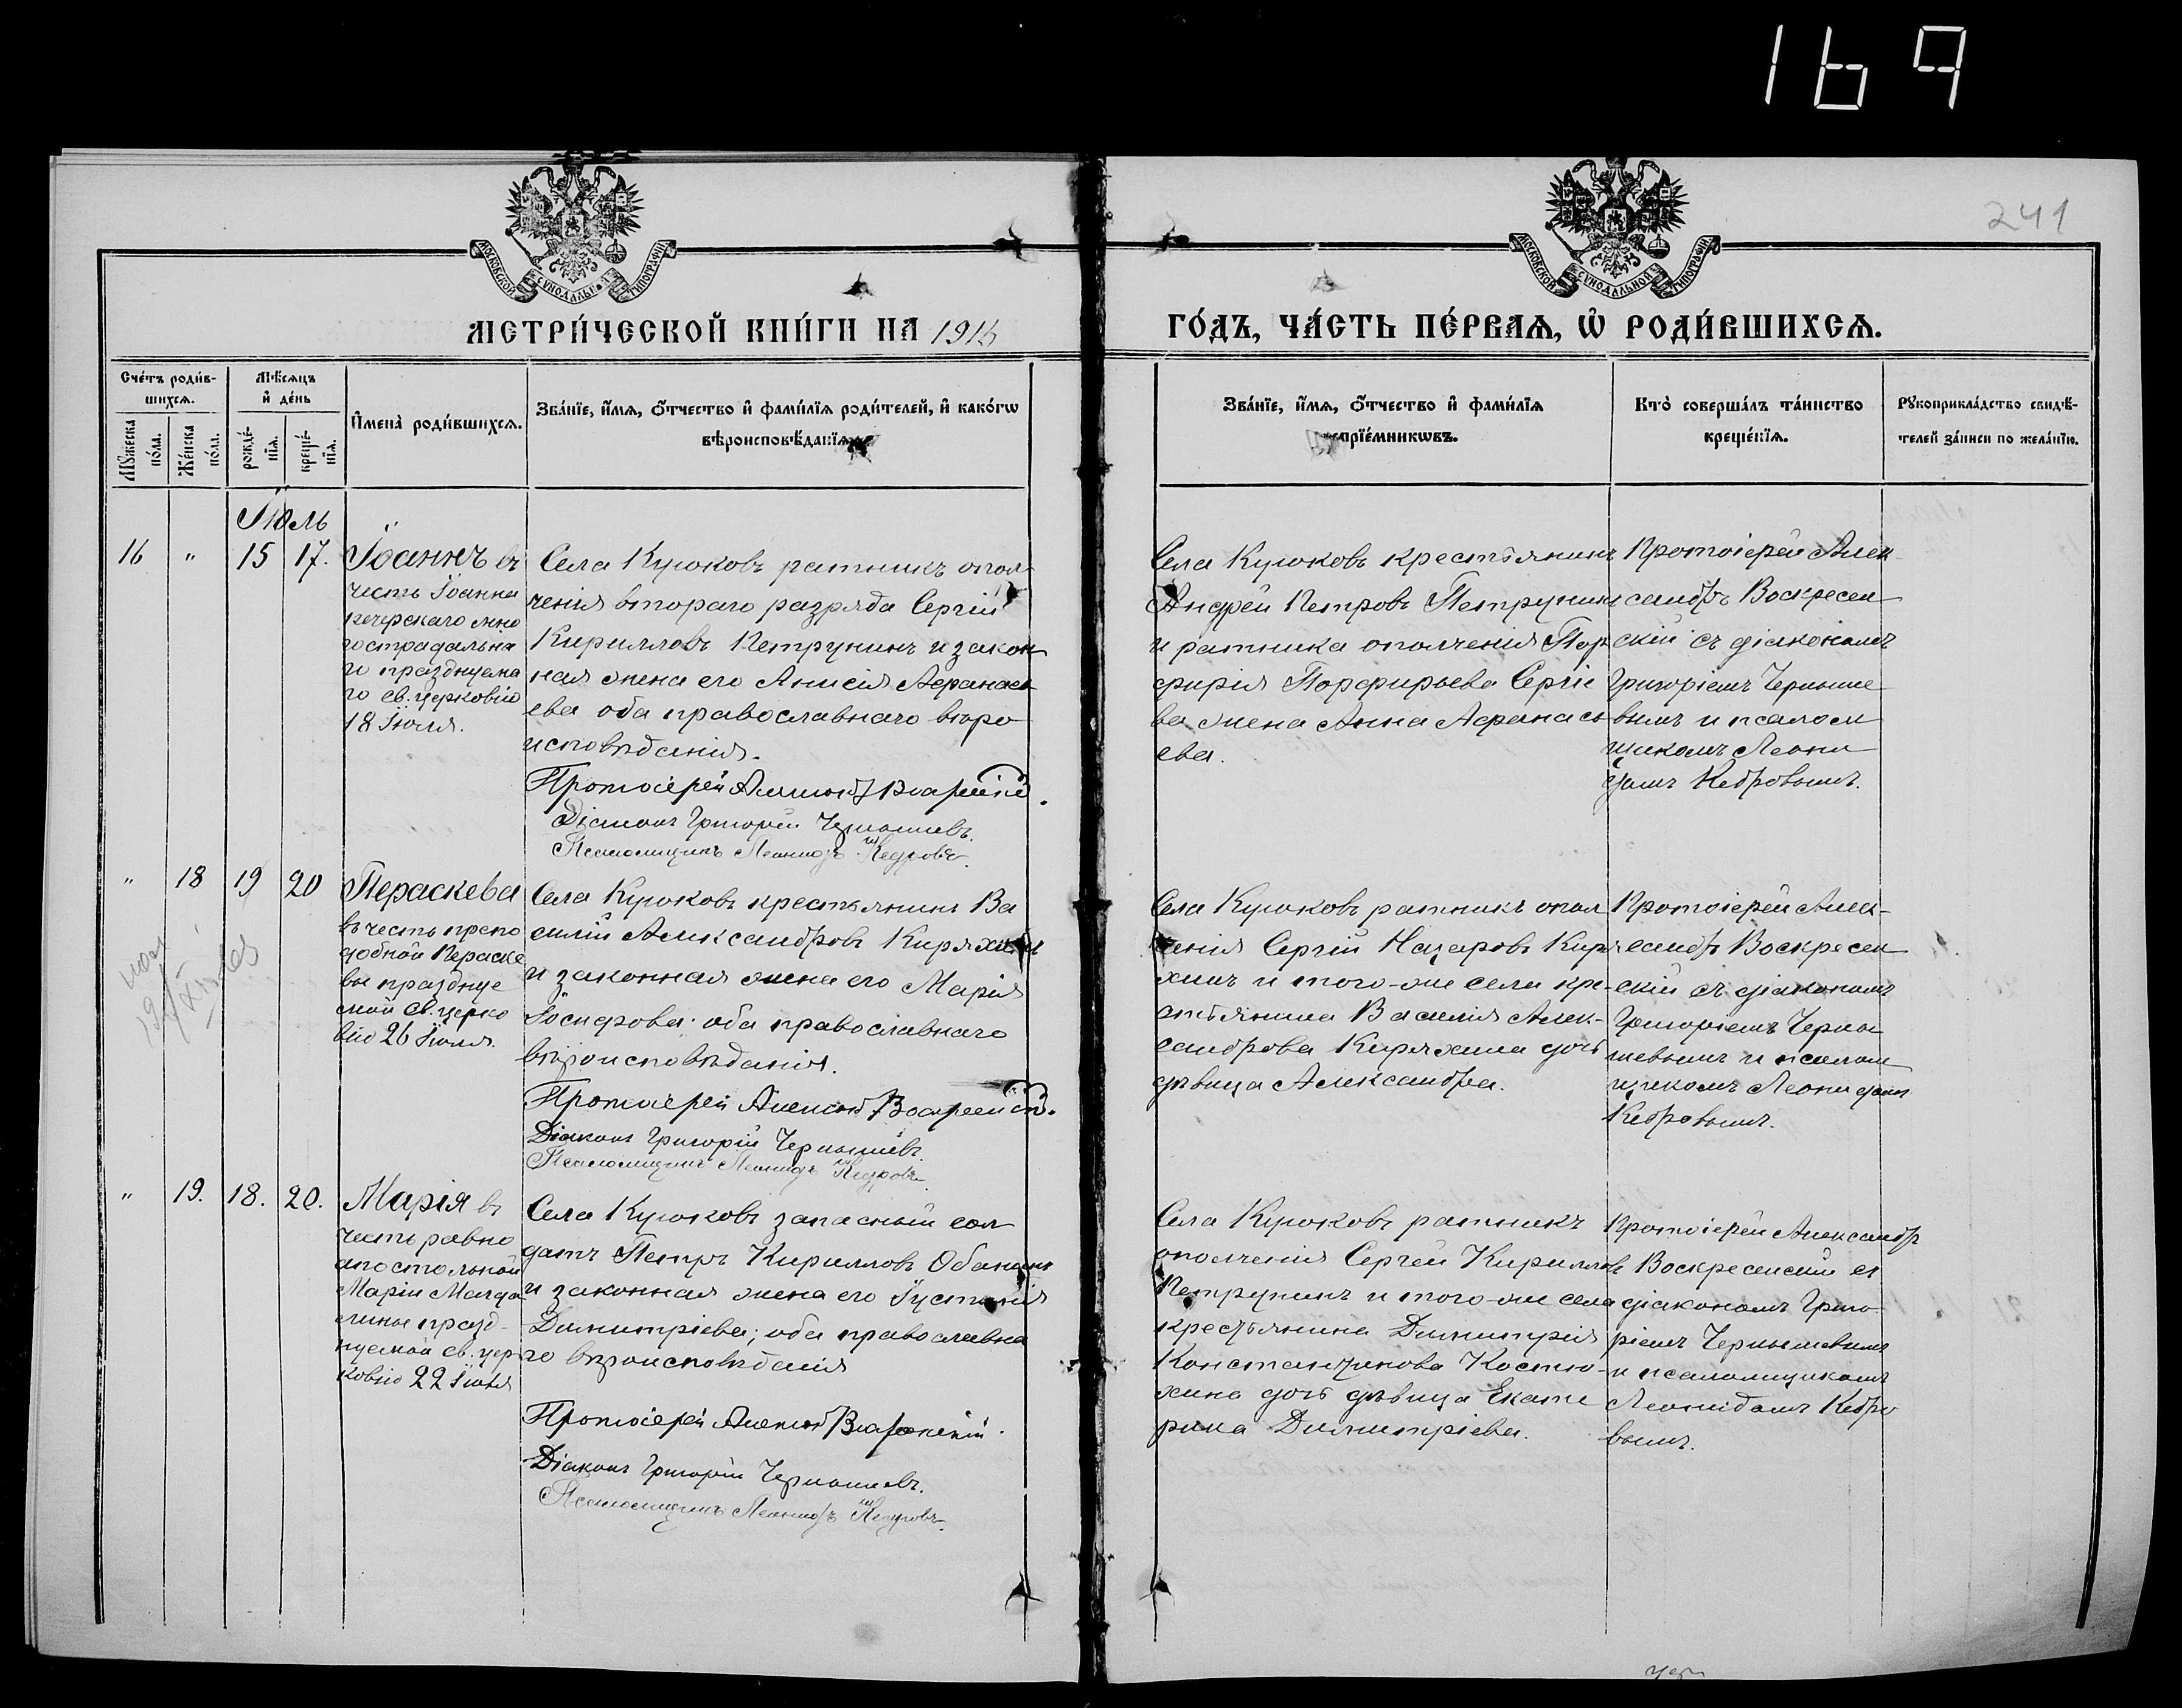 169
241
МОСКОВСКОЙ СУНОДАЛЬНОЙ ТИПОГРАФІИ
МОСКОВСКОЙ СУНОДАЛЬНОЙ ТИПОГРАФІИ
МЕТРИ́ЧЕСКОЙ КНИ́ГИ НА 1916
ГО́ДЪ, ЧА́СТЬ ПЕ́РВАѦ, Ѽ РОДИ́ВШИХСѦ.
Сче́тъ роди́в-
шихсѧ.
Мѣ́сѧцъ
и҆ де́нь
Мꙋ́жеска
по́ла.
Же́нска
по́ла.
рожде́-
нїѧ.
креще́-
нїѧ.
И҆мена̀ роди́вшихсѧ.
Зва́нїе, и҆́мѧ, ѻ҆́тчество и҆ фами́лїѧ роди́телей, и҆ како́гѡ
вѣроисповѣ́данїѧ.
Зва́нїе, и҆́мѧ, ѻ҆́тчество и҆ фами́лїѧ
воспрїе́мникѡвъ.
Кто̀ соверша́лъ та́инство
креще́нїѧ.
Рꙋкоприкла́дство свидѣ́-
телей за́писи по жела́нїю.
Іюль
16 " 15 17.
Іоаннъ въ
честь Іоанна
печерскаго мно
гострадальна
го празднуема
го св. церковію
18 Іюля.
Села Куюковъ ратникъ опол
ченія втораго разряда Сергій
Кирилловъ Петрунинъ и закон
ная жена его Анисія Афанась
ева оба православнаго вѣро
исповѣданія.
Протоіерей Александръ Воскресенскій.
Діаконъ Григорій Чернышевъ.
Псаломщикъ Леонидъ Кедровъ.
Села Куюковъ крестьянинъ
Андрей Петровъ Петрунинъ
и ратника ополченія Пор
фирія Порфирьева Сергіе
ва жена Анна Афанась
ева.
Протоіерей Алек
сандръ Воскресен
скій съ діакономъ
Григоріемъ Черныше
вымъ и псалом
щикомъ Леони
домъ Кедровымъ.
" 18 19 20
Параскева
въ честь препо
добной Параске
вы праздну
емой св. церко
вію 26 Іюля.
Села Куюковъ крестьянинъ Ва
силій Александровъ Киряхинъ
и законная жена его Марія
Іосифова; оба православнаго
вѣроисповѣданія.
Протоіерей Александръ Воскресенскій.
Діаконъ Григорій Чернышевъ.
Псаломщикъ Леонидъ Кедровъ.
Села Куюковъ ратникъ опол
ченія Сергій Назаровъ Киря
хинъ и того-же села кре-
стьянина Василія Алек-
сандрова Киряхина дочь
дѣвица Александра.
Протоіерей Алек-
сандръ Воскресен
скій съ діакономъ
Григоріемъ Черны
шевымъ и псалом
щикомъ Леонидомъ
Кедровымъ.
" 19. 18. 20.
Марія въ
честь равно
апостольной
Маріи Магда
лины празд-
нуемой св. цер
ковію 22 Іюля
Села Куюковъ запасный сол
датъ Петръ Кирилловъ
и законная жена его Іустинія
Димитріева; оба православна
го вѣроисповѣданія
Протоіерей Александръ Воскресенскій.
Діаконъ Григорій Чернышевъ.
Псаломщикъ Леонидъ Кедровъ.
Села Куюковъ ратникъ
ополченія Сергей Кирилловъ
Петрунинъ и того-же села
крестьянина Димитрія
Константинова Костю-
хина дочь дѣвица Екате
рина Димитріева.
Протоіерей Александръ
Воскресенскій съ
діакономъ Григо-
ріемъ Чернышевымъ
и псаломщикомъ
Леонидомъ Кедро
вымъ.